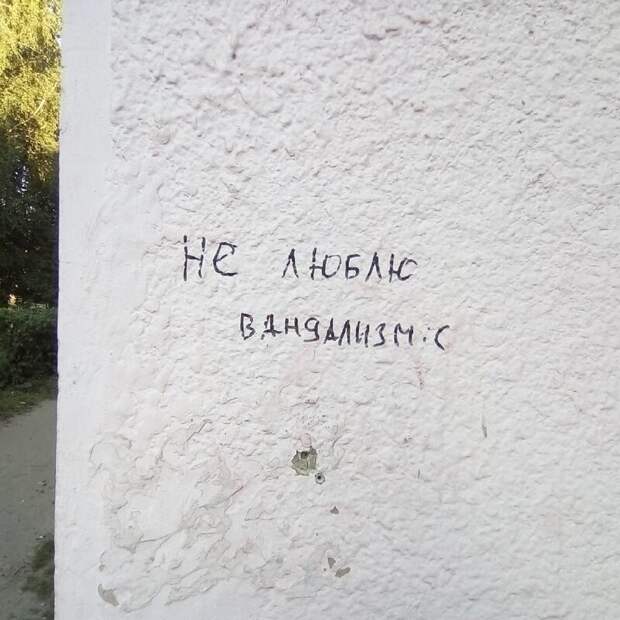 НЕ ЛЮБЛЮ
ВАНДАЛИЗМ:С